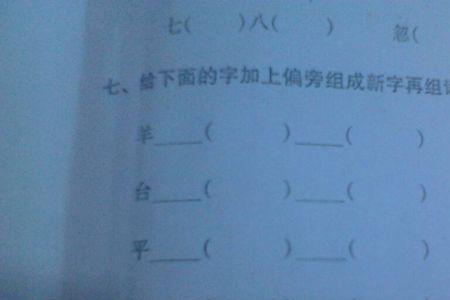 七(  )八(  )  忽(
七、给下面的字加上偏旁组成新字再组
羊____(  )____(  )
台____(  )____(  )
平____(  )____(  )